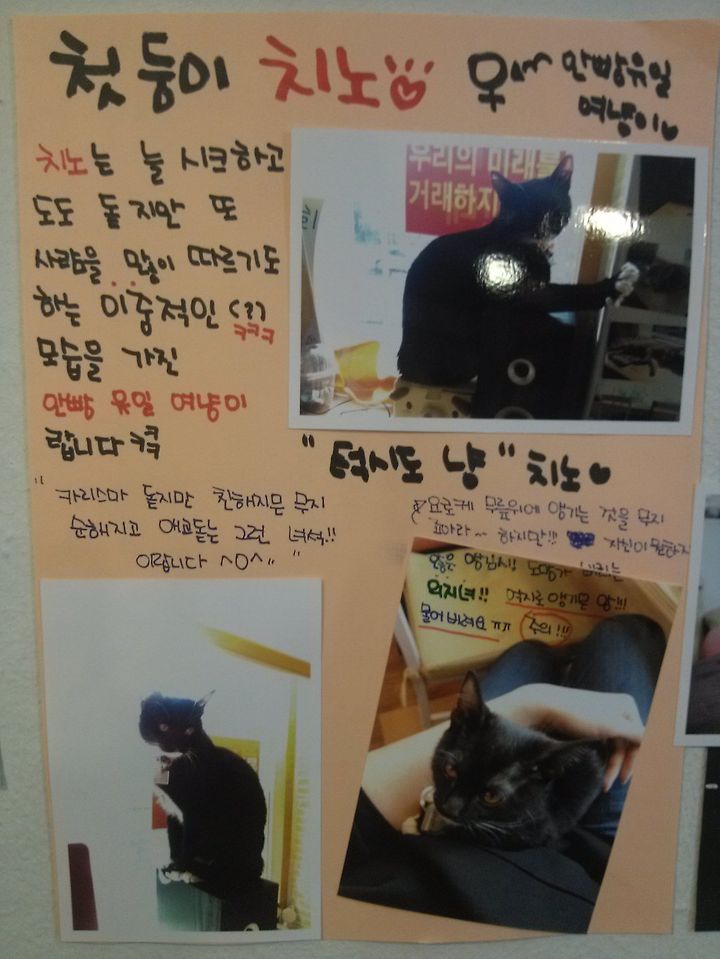 첫둥이 치노 ♀ 안빵유일
여냥이
치노는 늘 시크하고
도도 돋지만 또
사람을 많이 따르기도
하는 이중적인 (??)
ㅋㅋㅋ
모습을 가진
안빵 유일 여냥이
랍니다 ㅋㅋㅋ
우리의 미래를
거래하지
"턱시도 냥" 치노
"카리스마 돋지만 친해지믄 무지
순해지고 애교돋는 그런 녀석!!
이랍니다 ^0^"
요로케 무릎위에 앵기는 것을 무지
조아라~ 하지만!!! 자신이 원하지
않은 앵김시! 도망가 버리는
의지녀!! 억지로 앵기믄 앙!!!
물어버려요 ㅠㅠ 주의!!!